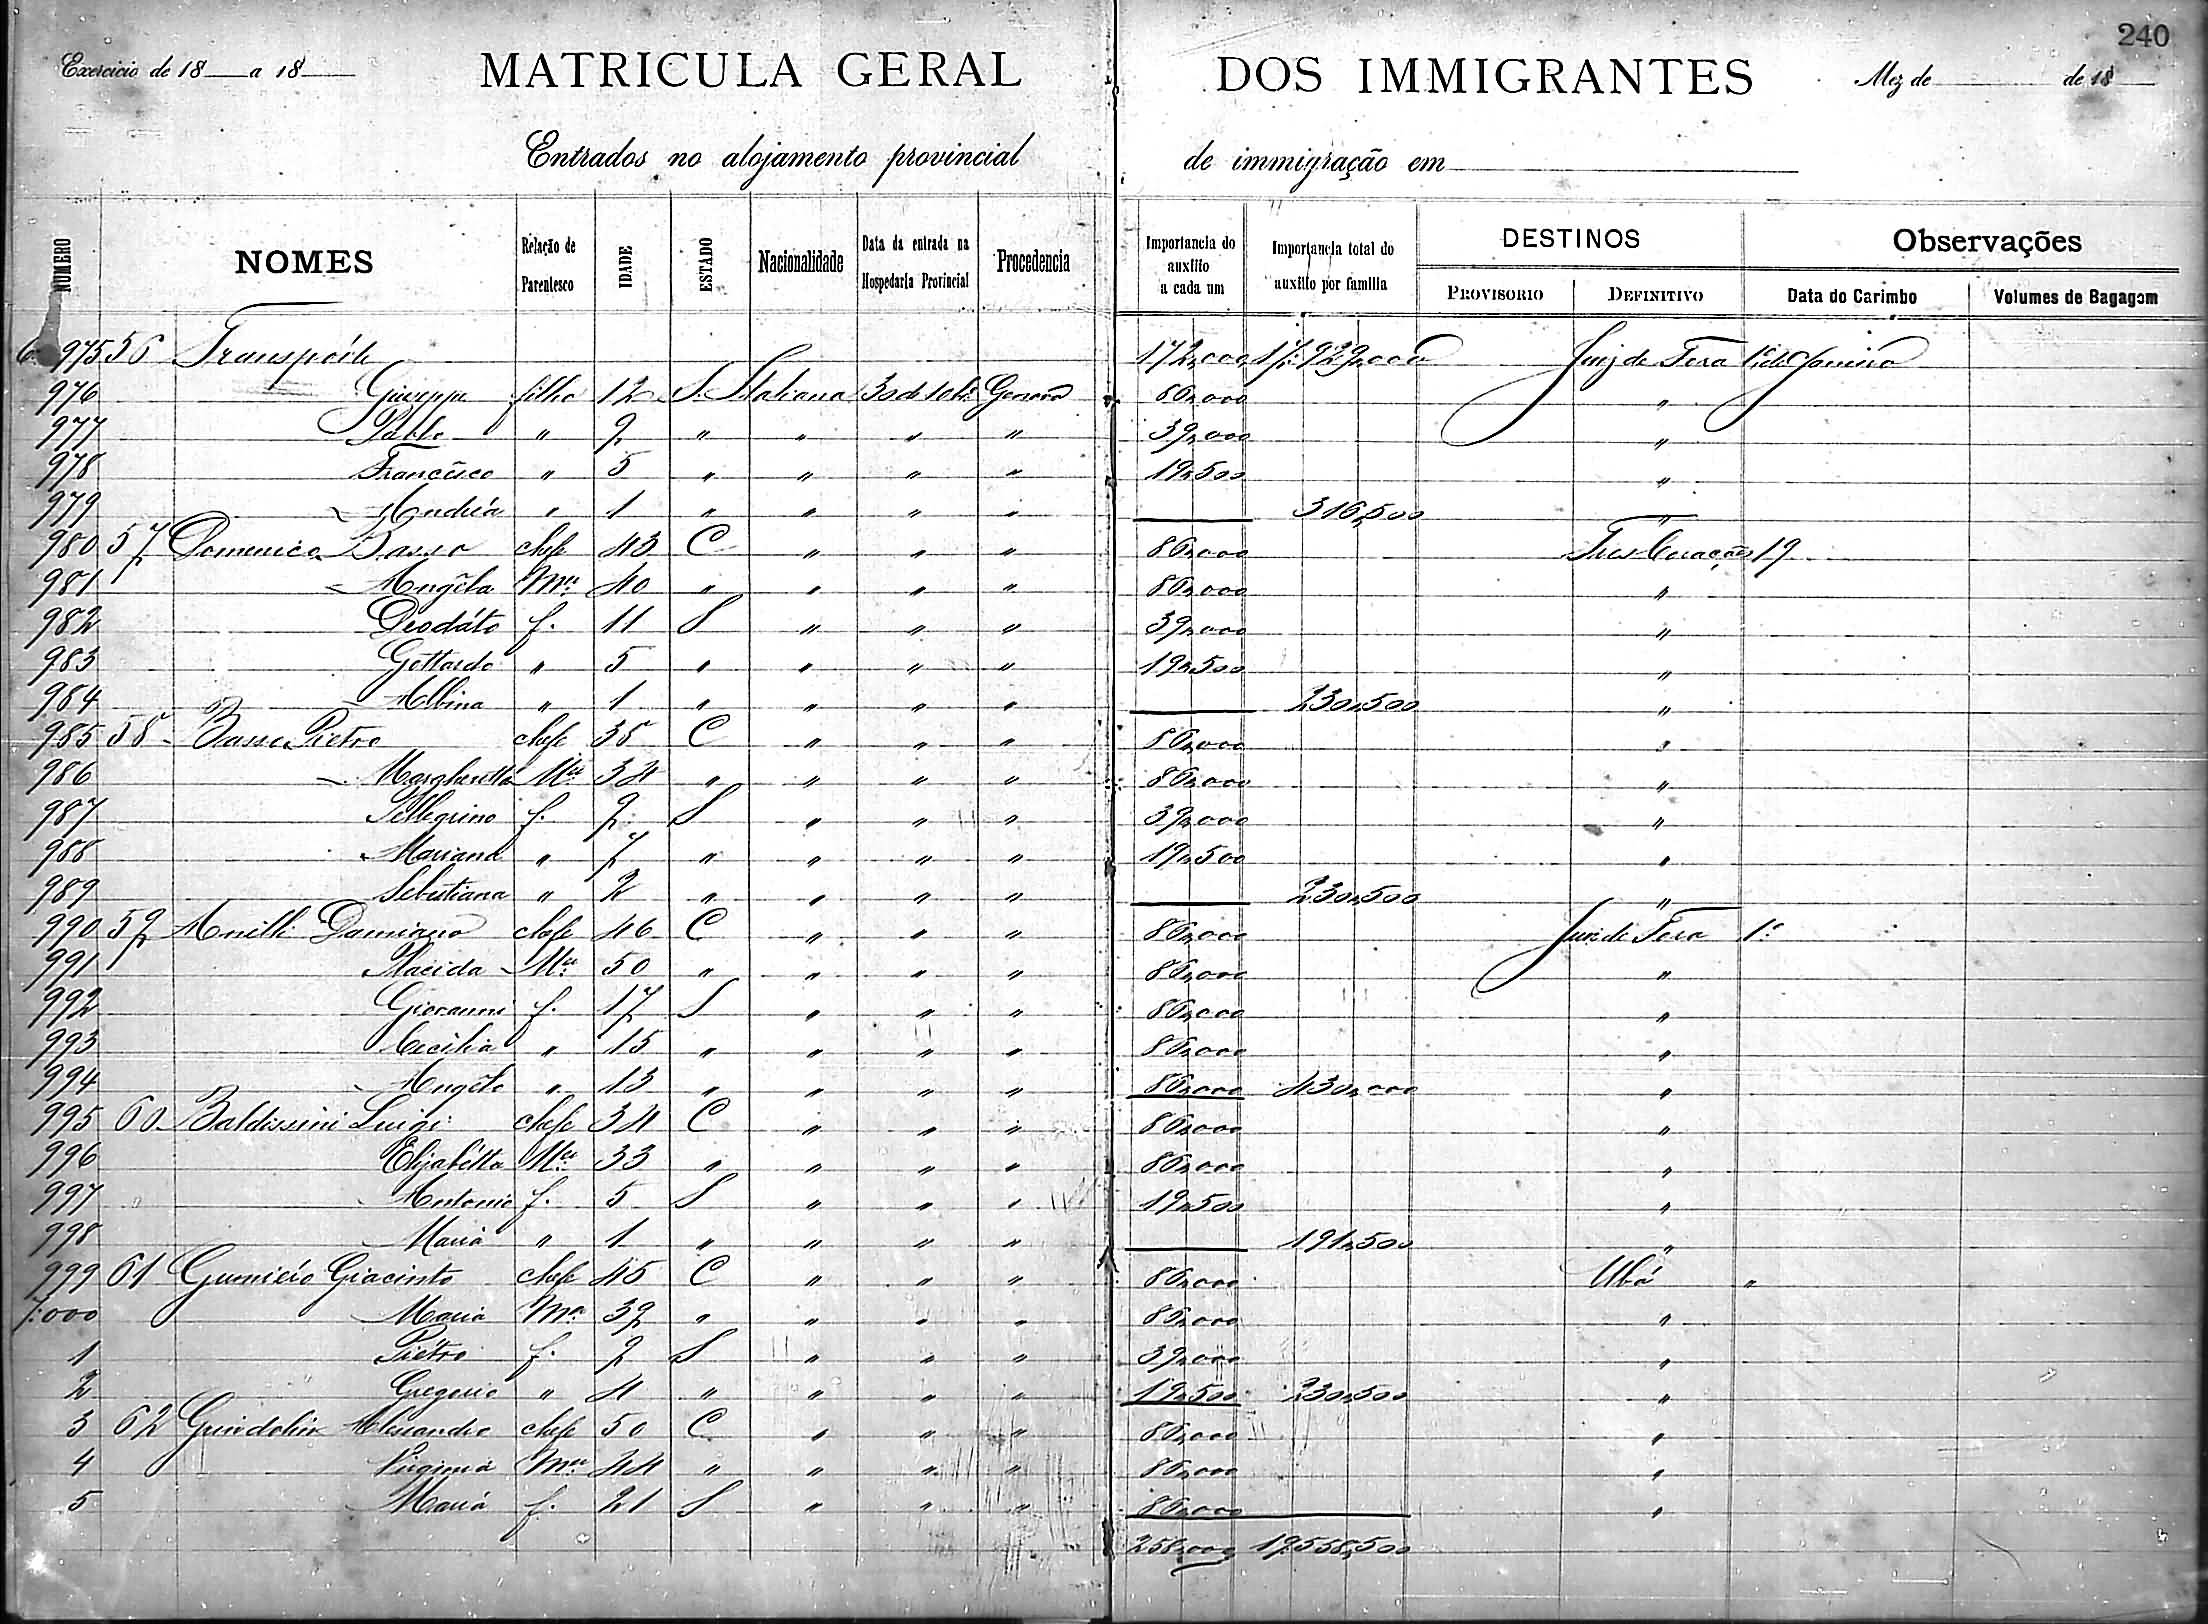 240
Exercicio de 18 a 18 MATRICULA GERAL DOS IMMIGRANTES Mez de de 18
Entrados no alojamento provincial de immigração em
NUMERO NOMES Relação de Parentesco IDADE ESTADO Nacionalidade Data da entrada na Hospedaria Provincial Procedencia Importancia do auxilio a cada um Importancia total do auxilio por familia DESTINOS PROVISORIO DEFINITIVO Observações Data do Carimbo Volumes de Bagagem
6 975 56 Transpórte 172,000 17:929,000 Juiz de Fora 1º de Janeiro
976 Giuseppe filho 12 S. Italiana 30 de 10bro Genova 86,000 "
977 Pablo " 9 " " " " 39,000 "
978 Francisco " 5 " " " " 19,500 "
979 Andréa " 1 " " " " 316,500 "
980 57 Domenico Basso chefe 43 C " " " 86,000 Tres Corações 19
981 Angéla Mer 40 " " " " 86,000 "
982 Deodáto f. 11 S " " " 39,000 "
983 Gottardo " 5 " " " " 19,500 "
984 Albina " 1 " " " " 230,500 "
985 58 Basso Pietro chefe 35 C " " " 86,000 "
986 Margheretta Mer 34 " " " " 86,000 "
987 Pellegrino f. 9 S " " " 39,000 "
988 Mariana " 7 " " " " 19,500 "
989 Sebestiana " 2 " " " " 230,500 "
990 59 Damiano chefe 46 C " " " 86,000 Juiz de Fora 1º
991 Placida Mer 50 " " " " 86,000 "
992 Giovanni f. 17 S " " " 86,000 "
993 Cecilia " 15 " " " " 86,000 "
994 Angélo " 13 " " " " 86,000 430,000 "
995 60 Baldissini Luigi chefe 34 C " " " 86,000 "
996 Elizabétta Mer 33 " " " " 86,000 "
997 Antonio f. 5 S " " " 19,500 "
998 Maria " 1 " " " " 191,500 "
999 61 Giacinto chefe 45 C " " " 86,000 Ubá "
7:000 Maria Mer 39 " " " " 86,000 "
1 Piétro f. 9 S " " " 39,000 "
2 Gregorio " 4 " " " " 19,500 230,500 "
3 62 Alessandro chefe 50 C " " " 86,000 "
4 Virginia Mer 44 " " " " 86,000 "
5 Maria f. 21 S " " " 86,000 "
258,000 19:558,500